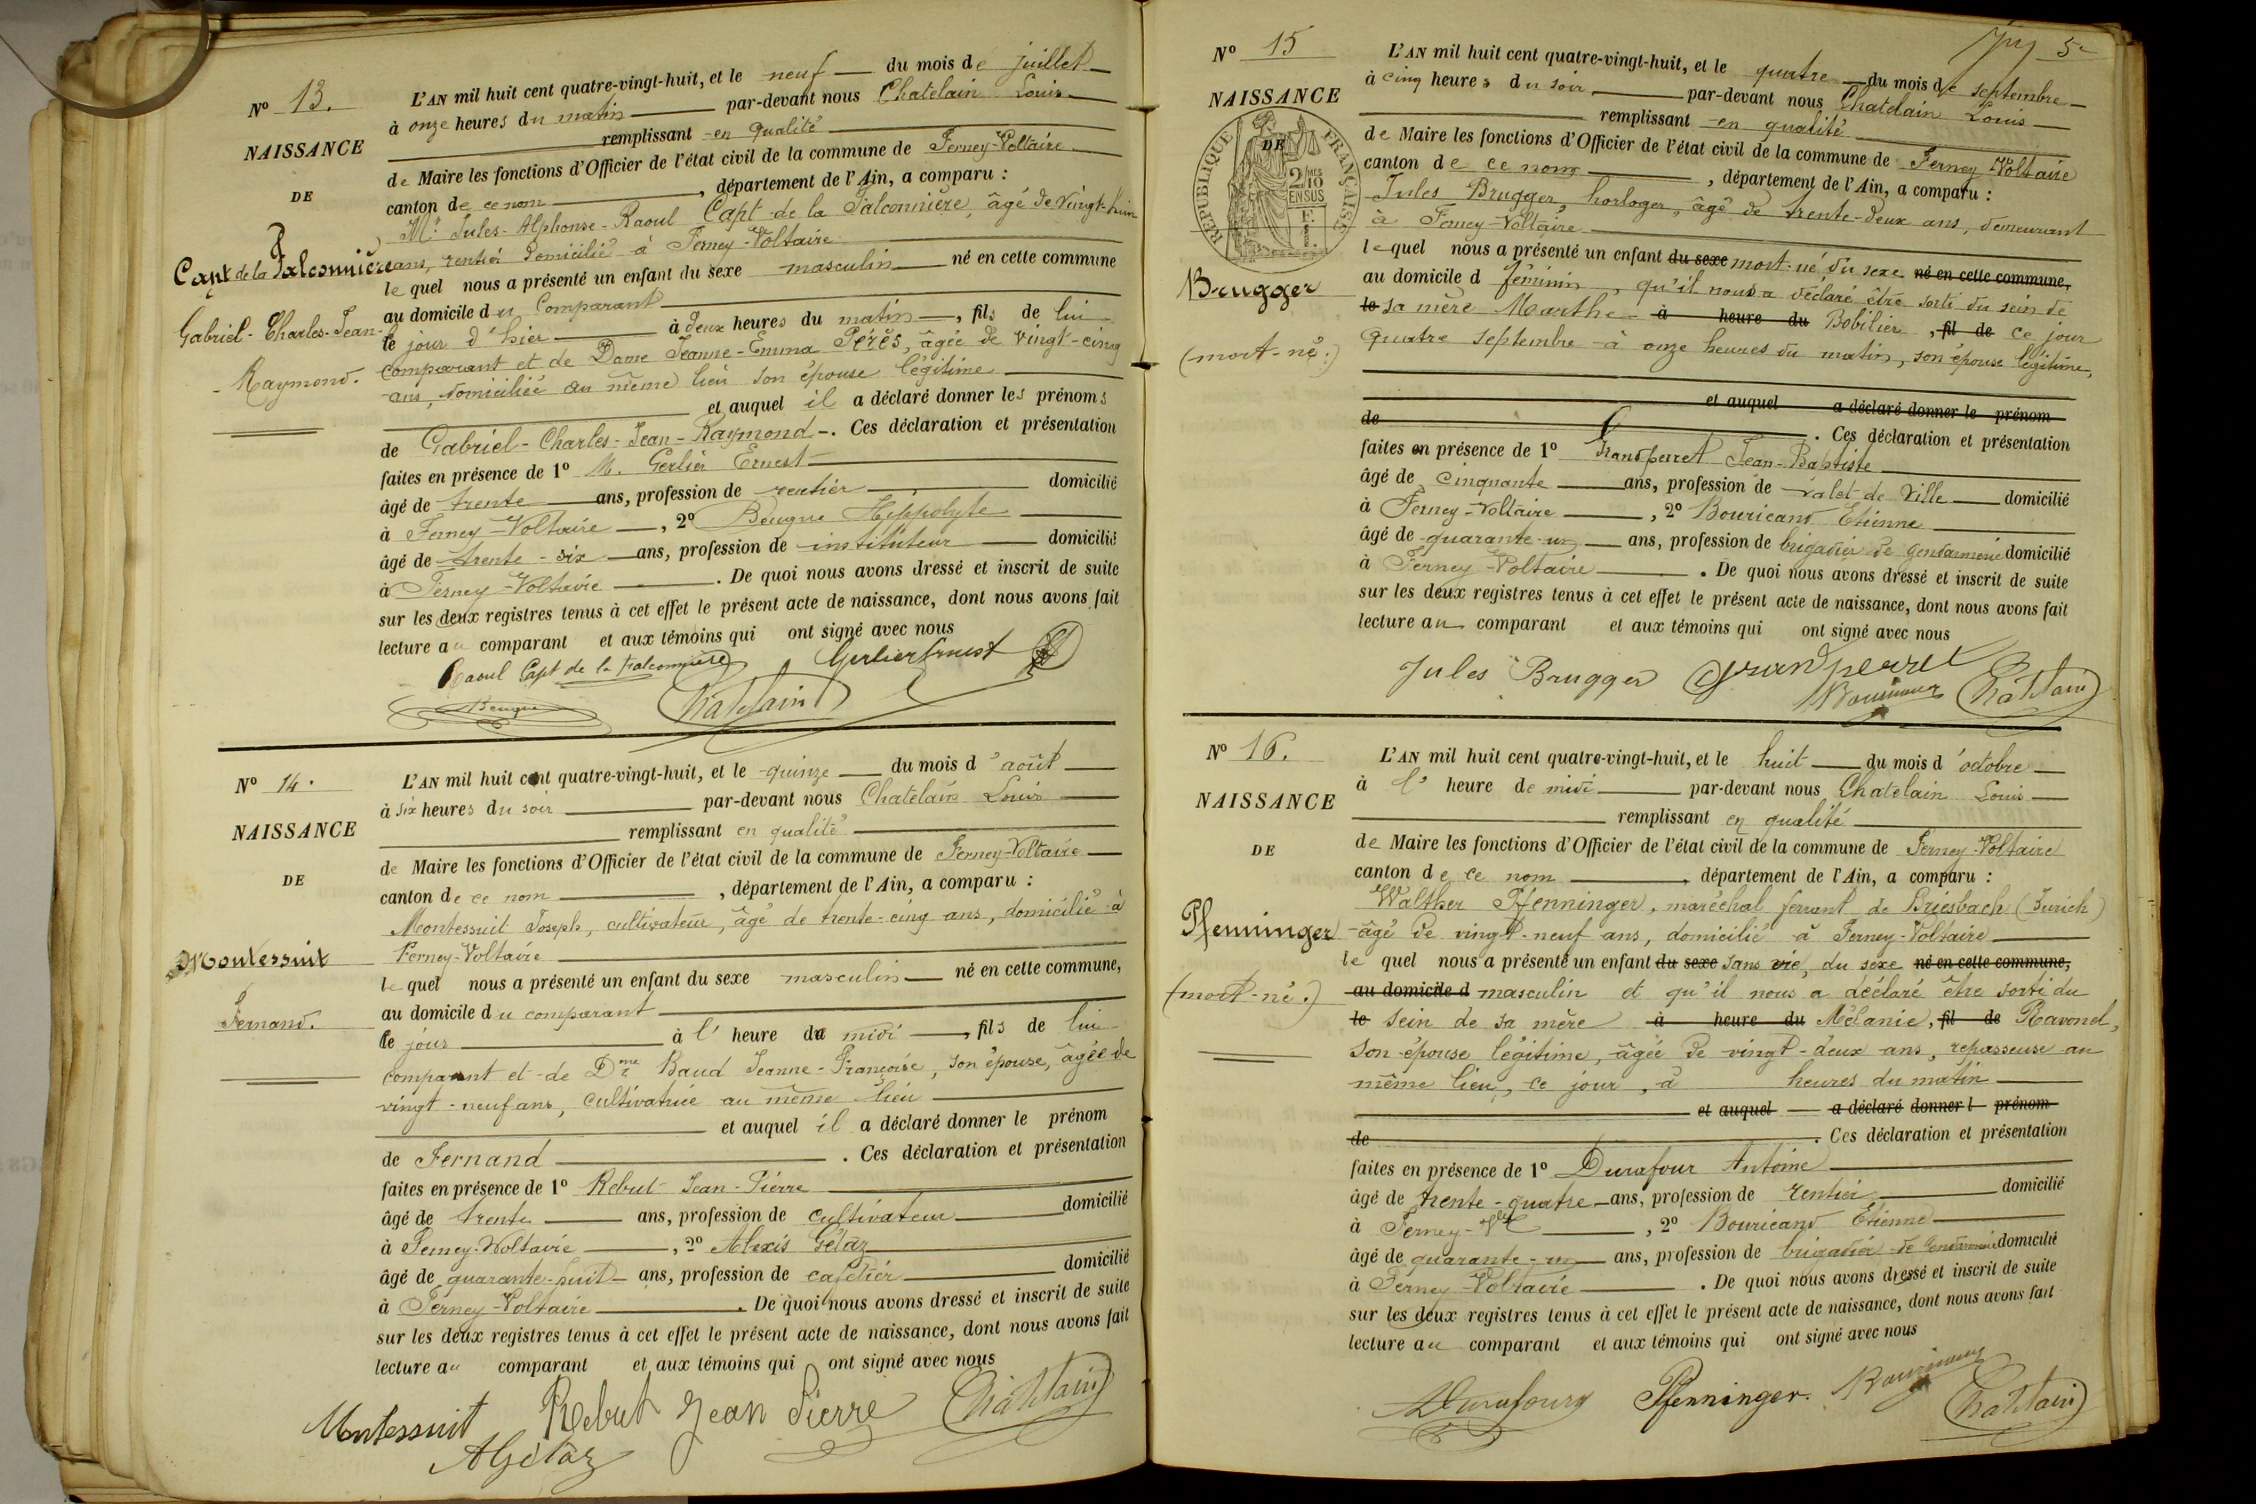 N° 13.
NAISSANCE
DE
Capt de la Falconnière
Gabriel-Charles-Jean-
Raymond.
L'AN mil huit cent quatre-vingt-huit, et le neuf du mois de juillet
à onze heures du matin par-devant nous Chatelain Louis
remplissant en qualité
de Maire les fonctions d'Officier de l'état civil de la commune de Ferney-Voltaire
canton de ce nom, département de l'Ain, a comparu :
Mr Jules-Alphonse-Raoul Capt de la Falconnière, âgé de vingt-huit
ans, rentier domicilié à Ferney-Voltaire
lequel nous a présenté un enfant du sexe masculin né en cette commune
au domicile du Comparant
le jour d'hier à deux heures du matin, fils de lui
comparant et de Dame Jeanne-Emma Pérès, âgée de vingt-cinq
ans, domiciliée au même lieu son épouse légitime
et auquel il a déclaré donner les prénoms
de Gabriel-Charles-Jean-Raymond. Ces déclaration et présentation
faites en présence de 1° M. Gerlier Ernest
âgé de trente ans, profession de rentier domicilié
à Ferney-Voltaire, 2° Beugne Hippolyte
âgé de trente-six ans, profession de instituteur domicilié
à Ferney-Voltaire. De quoi nous avons dressé et inscrit de suite
sur les deux registres tenus à cet effet le présent acte de naissance, dont nous avons fait
lecture au comparant et aux témoins qui ont signé avec nous
Raoul Capt de la Falconnière Gerlier Ernest
Beugne Chatelain
N° 14.
NAISSANCE
DE
Montessuit
Fernand.
L'AN mil huit cent quatre-vingt-huit, et le quinze du mois d'août
à six heures du soir par-devant nous Chatelain Louis
remplissant en qualité
de Maire les fonctions d'Officier de l'état civil de la commune de Ferney-Voltaire
canton de ce nom, département de l'Ain, a comparu :
Montessuit Joseph, cultivateur, âgé de trente-cinq ans, domicilié à
Ferney-Voltaire
lequel nous a présenté un enfant du sexe masculin né en cette commune,
au domicile du comparant
le jour à l'heure de midi, fils de lui
comparant et de Dme Baud Jeanne-Françoise, son épouse, âgée de
vingt-neuf ans, cultivatrice au même lieu
et auquel il a déclaré donner le prénom
de Fernand. Ces déclaration et présentation
faites en présence de 1° Rebut Jean-Pierre
âgé de trente ans, profession de cultivateur domicilié
à Ferney-Voltaire, 2° Alexis Gétaz
âgé de quarante-huit ans, profession de cafetier domicilié
à Ferney-Voltaire. De quoi nous avons dressé et inscrit de suite
sur les deux registres tenus à cet effet le présent acte de naissance, dont nous avons fait
lecture au comparant et aux témoins qui ont signé avec nous
Montessuit Rebut Jean Pierre Chatelain
A Gétaz
5e
N° 15
NAISSANCE
DE
RÉPUBLIQUE FRANÇAISE
2/10 EN SUS
Brugger
(mort-né.)
L'AN mil huit cent quatre-vingt-huit, et le quatre du mois de septembre
à cinq heures du soir par-devant nous Chatelain Louis
remplissant en qualité
de Maire les fonctions d'Officier de l'état civil de la commune de Ferney Voltaire
canton de ce nom, département de l'Ain, a comparu :
Jules Brugger, horloger, âgé de trente-deux ans, demeurant
à Ferney-Voltaire
lequel nous a présenté un enfant du sexe mort-né du sexe né en cette commune,
au domicile d féminin, qu'il nous a déclaré être sorti du sein de
le sa mère Marthe à heure du Bobilier, fil de ce jour
quatre septembre à onze heures du matin, son épouse légitime,
et auquel a déclaré donner le prénom
de . Ces déclaration et présentation
faites en présence de 1° Grandperret Jean-Baptiste
âgé de cinquante ans, profession de valet de Ville domicilié
à Ferney-Voltaire, 2° Bouricand Etienne
âgé de quarante-un ans, profession de brigadier de gendarmerie domicilié
à Ferney-Voltaire. De quoi nous avons dressé et inscrit de suite
sur les deux registres tenus à cet effet le présent acte de naissance, dont nous avons fait
lecture au comparant et aux témoins qui ont signé avec nous
Jules Brugger Grandperret
Bouricand Chatelain
N° 16.
NAISSANCE
DE
Pfenninger
(mort-né.)
L'AN mil huit cent quatre-vingt-huit, et le huit du mois d'octobre
à l'heure de midi par-devant nous Chatelain Louis
remplissant en qualité
de Maire les fonctions d'Officier de l'état civil de la commune de Ferney-Voltaire
canton de ce nom, département de l'Ain, a comparu :
Walther Pfenninger, maréchal ferrant de Briesbach (Zurich)
âgé de vingt-neuf ans, domicilié à Ferney-Voltaire
lequel nous a présenté un enfant du sexe sans vie, du sexe né en cette commune,
au domicile d masculin et qu'il nous a déclaré être sorti du
le sein de sa mère à heure du Mélanie, fil de Ravonel,
son épouse légitime, âgée de vingt-deux ans, repasseuse au
même lieu, ce jour, à heures du matin
et auquel a déclaré donner l prénom
de . Ces déclaration et présentation
faites en présence de 1° Durafour Antoine
âgé de trente-quatre ans, profession de rentier domicilié
à Ferney-Vre, 2° Bouricand Etienne
âgé de quarante-un ans, profession de brigadier de gendarmerie domicilié
à Ferney-Voltaire. De quoi nous avons dressé et inscrit de suite
sur les deux registres tenus à cet effet le présent acte de naissance, dont nous avons fait
lecture au comparant et aux témoins qui ont signé avec nous
A Durafourg Pfenninger. Bouricand Chatelain